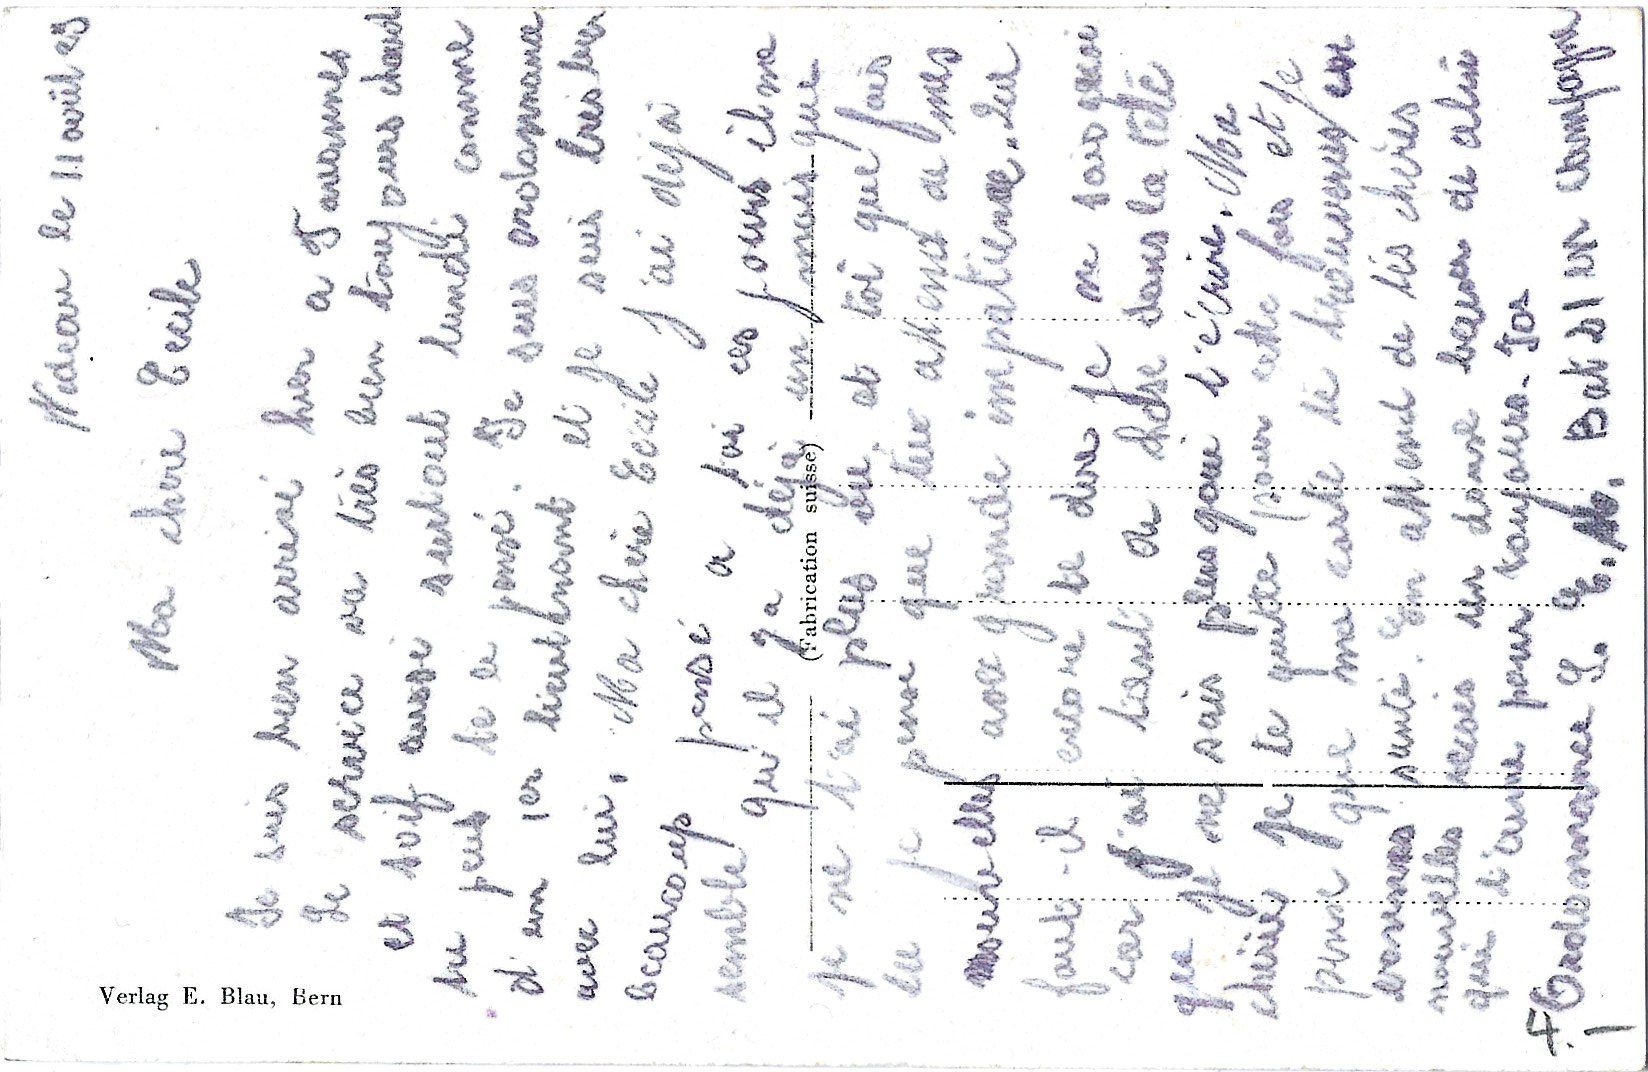 Nidau le 11 avril 23
Ma chère Cécile
Je suis bien arrivé hier a Tavannes
Le service va très bien toujours chaud
et soif aussi surtout lundi comme
tu peut te le pensé. Je suis ordonnance
d'un 1er lieutenant et je suis très bien
avec lui, Ma chère Cécile j'ai déjà
beaucoup pensé a toi ces jours il me
semble qu'il y a déjà un mois que
je ne t'ai plus vu et toi que fais
tu je pense que tu attend de mes
nouvelles avec grande impatience. Que
faut-il encore te dire je ne sais quoi
car j'ai tant a dans la tête
que je ne sais plus quoi t'écrire. Ma
chérie je te quitte pour cette fois et je
pense que ma carte te trouveras en
bonnes santé en attend de tes chères
nouvelles recois un doux baiser de celui
qui t'aime pour toujours. Jos
Ordonnance Bat 21 en campagne
4.—
Verlag E. Blau, Bern
(Fabrication suisse)